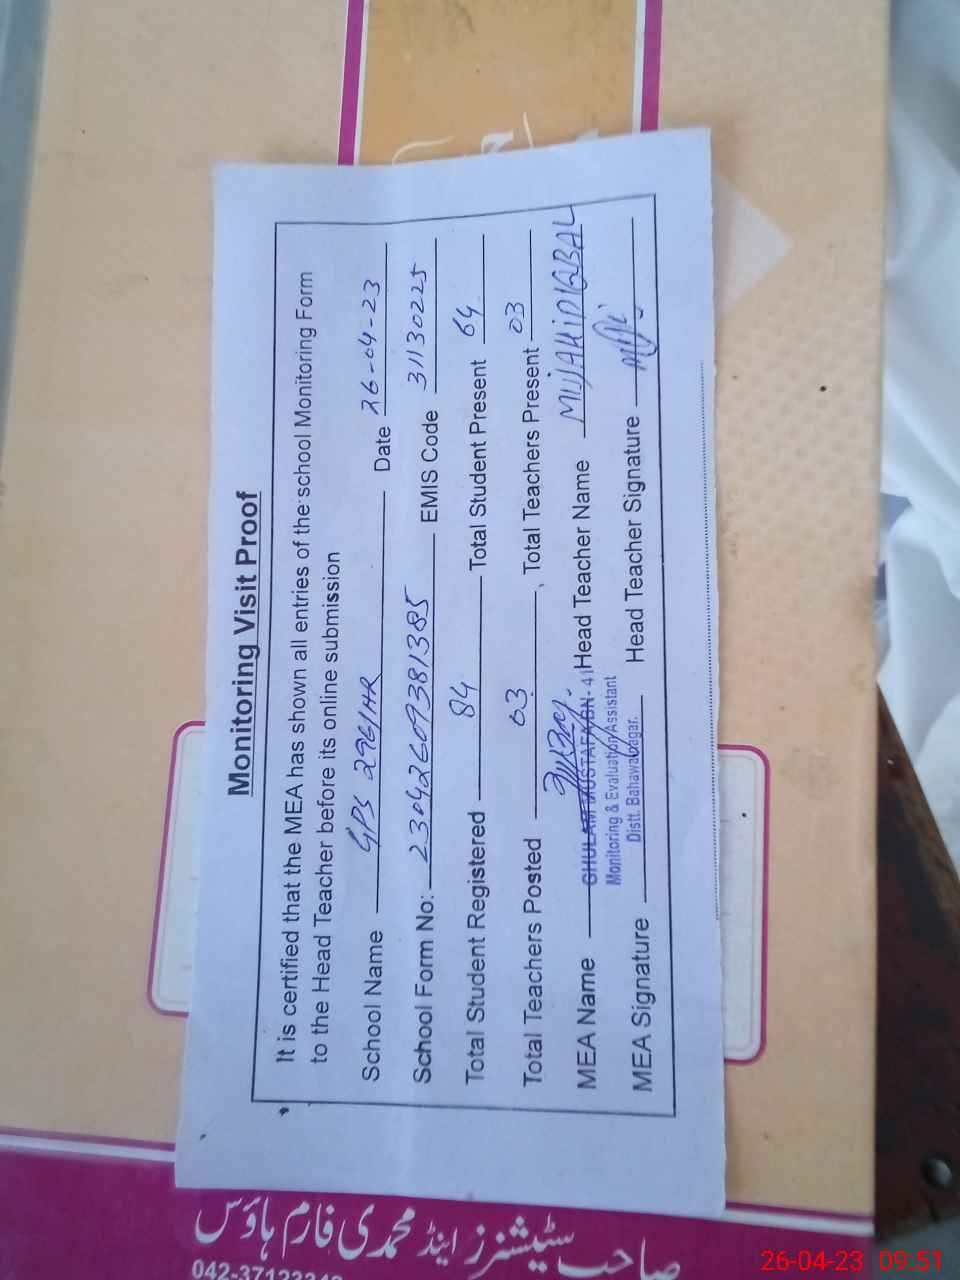 Monitoring Visit Proof
It is certified that the MEA has shown all entries of the school Monitoring Form
to the Head Teacher before its online submission
School Name GPS 296/HR Date 26-04-23
School Form No: 23042609381385 EMIS Code 31130225
Total Student Registered 84 Total Student Present 64
Total Teachers Posted 03, Total Teachers Present 03
MEA Name GHULAM MUSTAFA BN-41 Head Teacher Name MUJAHID IQBAL
Monitoring & Evaluation Assistant
Distt. Bahawalnagar.
MEA Signature Head Teacher Signature
صاحب سٹیشنرز اینڈ محمدی فارم ہاؤس
26-04-23 09:51